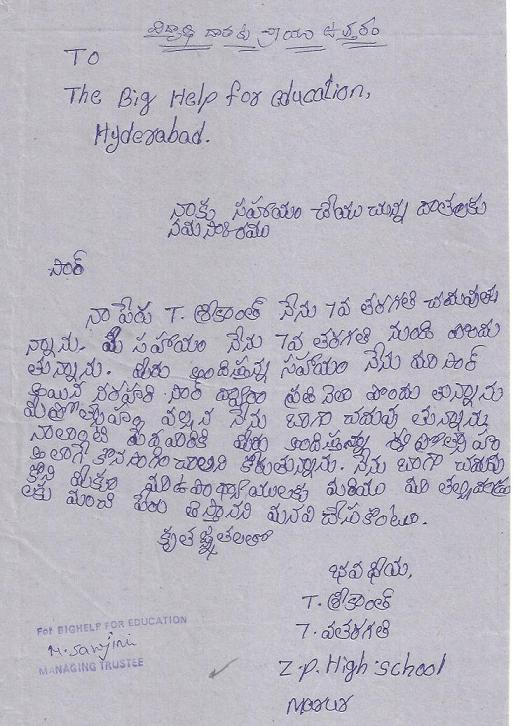 విద్యార్థి దాతకు వ్రాయు ఉత్తరం
TO
The Big Help for education,
Hyderabad.
నాకు సహాయం చేయు చున్న దాతలకు
నమస్కారము
సార్
నా పేరు T. శ్రీకాంత్ నేను 7వ తరగతి చదువుతు
న్నాను. మీ సహాయం నేను 7వ తరగతి నుండి పొందు
తున్నాను. మీరు అందిస్తున్న సహాయం నేను మా సార్
అయిన నరహరి సార్ ద్వారా ప్రతి నెలా పొందు తున్నాను
మీ ప్రోత్సాహం వల్లన నేను బాగా చదువు తున్నాను
నాలాంటి పేదవారికి మీరు అందిస్తున్న ఈ ప్రోత్సాహం
ఇలాగే కొనసాగించాలని కోరుతున్నాను. నేను బాగా చదువు
కొని మీకు మా ఉపాధ్యాయులకు మరియు మా తల్లిదండ్రు
లకు మంచి పేరు తెస్తానని మనవి చేసుకొంటూ.
కృతజ్ఞతలతో
భవదీయ,
T. శ్రీకాంత్
7. వతరగతి
Z.p. High school
For BIGHELP FOR EDUCATION
MANAGING TRUSTEE